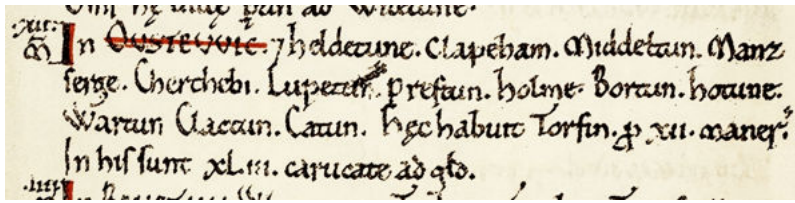 Om̄s hę uille p̄tin ad Witetune.
.XII.
M̄ In OUSTEUUIC. ⁊ heldetune. Clapeham. Middeltun. Manz
serge. Cherchebi. Lupetun. Prestun. holme. Bortun. hotune.
Wartun Clactun. Catun. Hęc habuit Torfin. ꝓ XII. maner̃.
In his sunt XL.III. carucate ad gld̄.
.IIII.